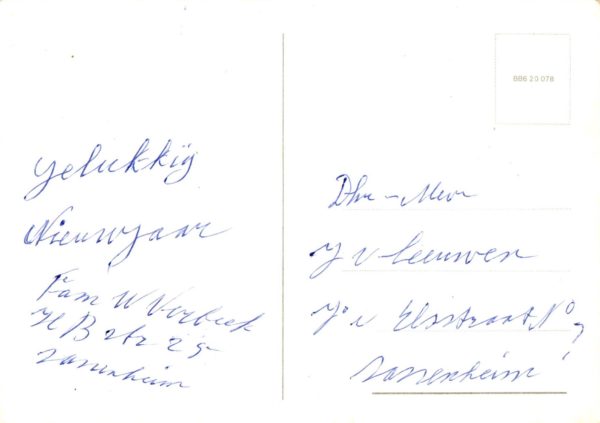 Gelukkig
Nieuwjaar
Fam W Verbeek
H B str 25
Sassenheim
BBB 20 078
Dhr - Mevr
J v Leeuwen
J v Elsstraat No 7
Sassenheim